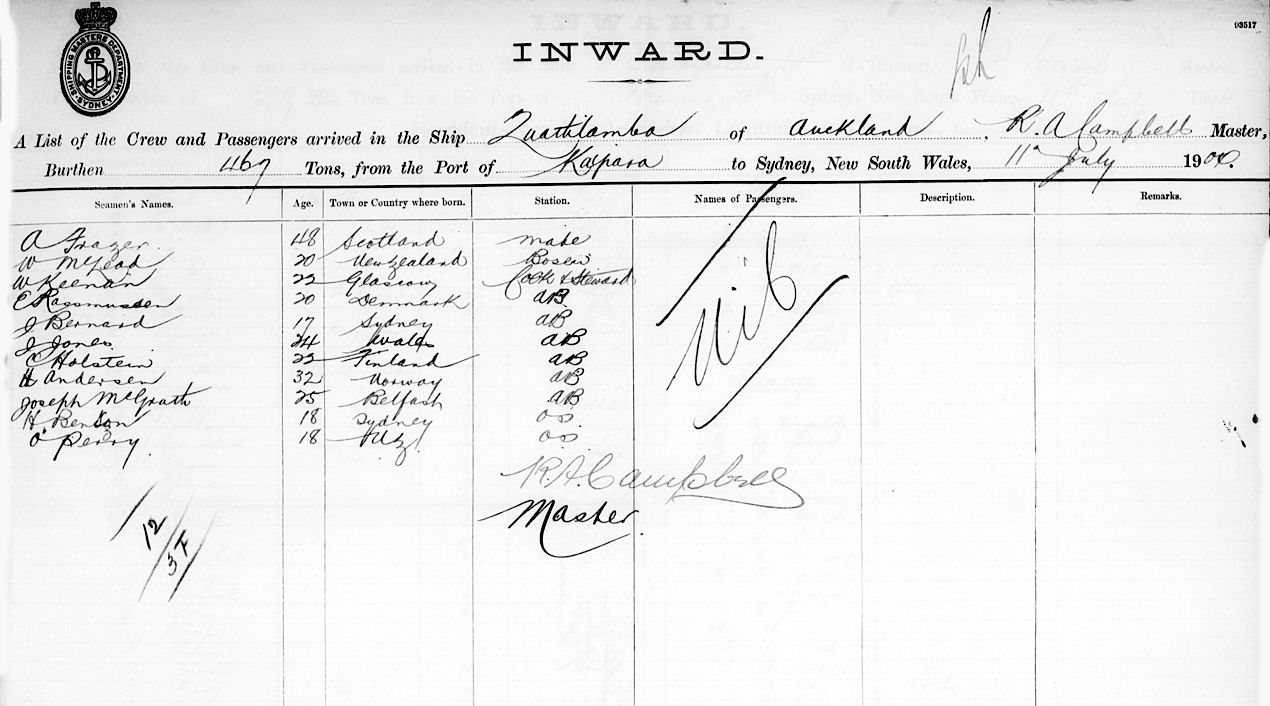 93517
SHIPPING MASTERS DEPARTMENT SYDNEY
INWARD.
A List of the Crew and Passengers arrived in the Ship Quathlamba of Auckland, R. A Campbell Master,
Burthen 467 Tons, from the Port of Kaipara to Sydney, New South Wales, 11th July 190
Seamen's Names. Age. Town or Country where born. Station. Names of Passengers. Description. Remarks.
A Frazer. 48 Scotland mate
W McLeod 20 New Zealand Bosen
W Keenan 22 Glascow Cook & Steward
C Rassmussen 20 Denmark AB
J Bernard 17 Sydney AB
J Jones. 24 Wales AB
C Holstein 22 Finland AB
H Andersen 32 Norway AB
Joseph McGrath 25 Belfast AB
H. Benson 18 Sydney OS
O Perry. 18 N.Z.
OS
Nil
R.A. Campbell
Master.
12
3 F